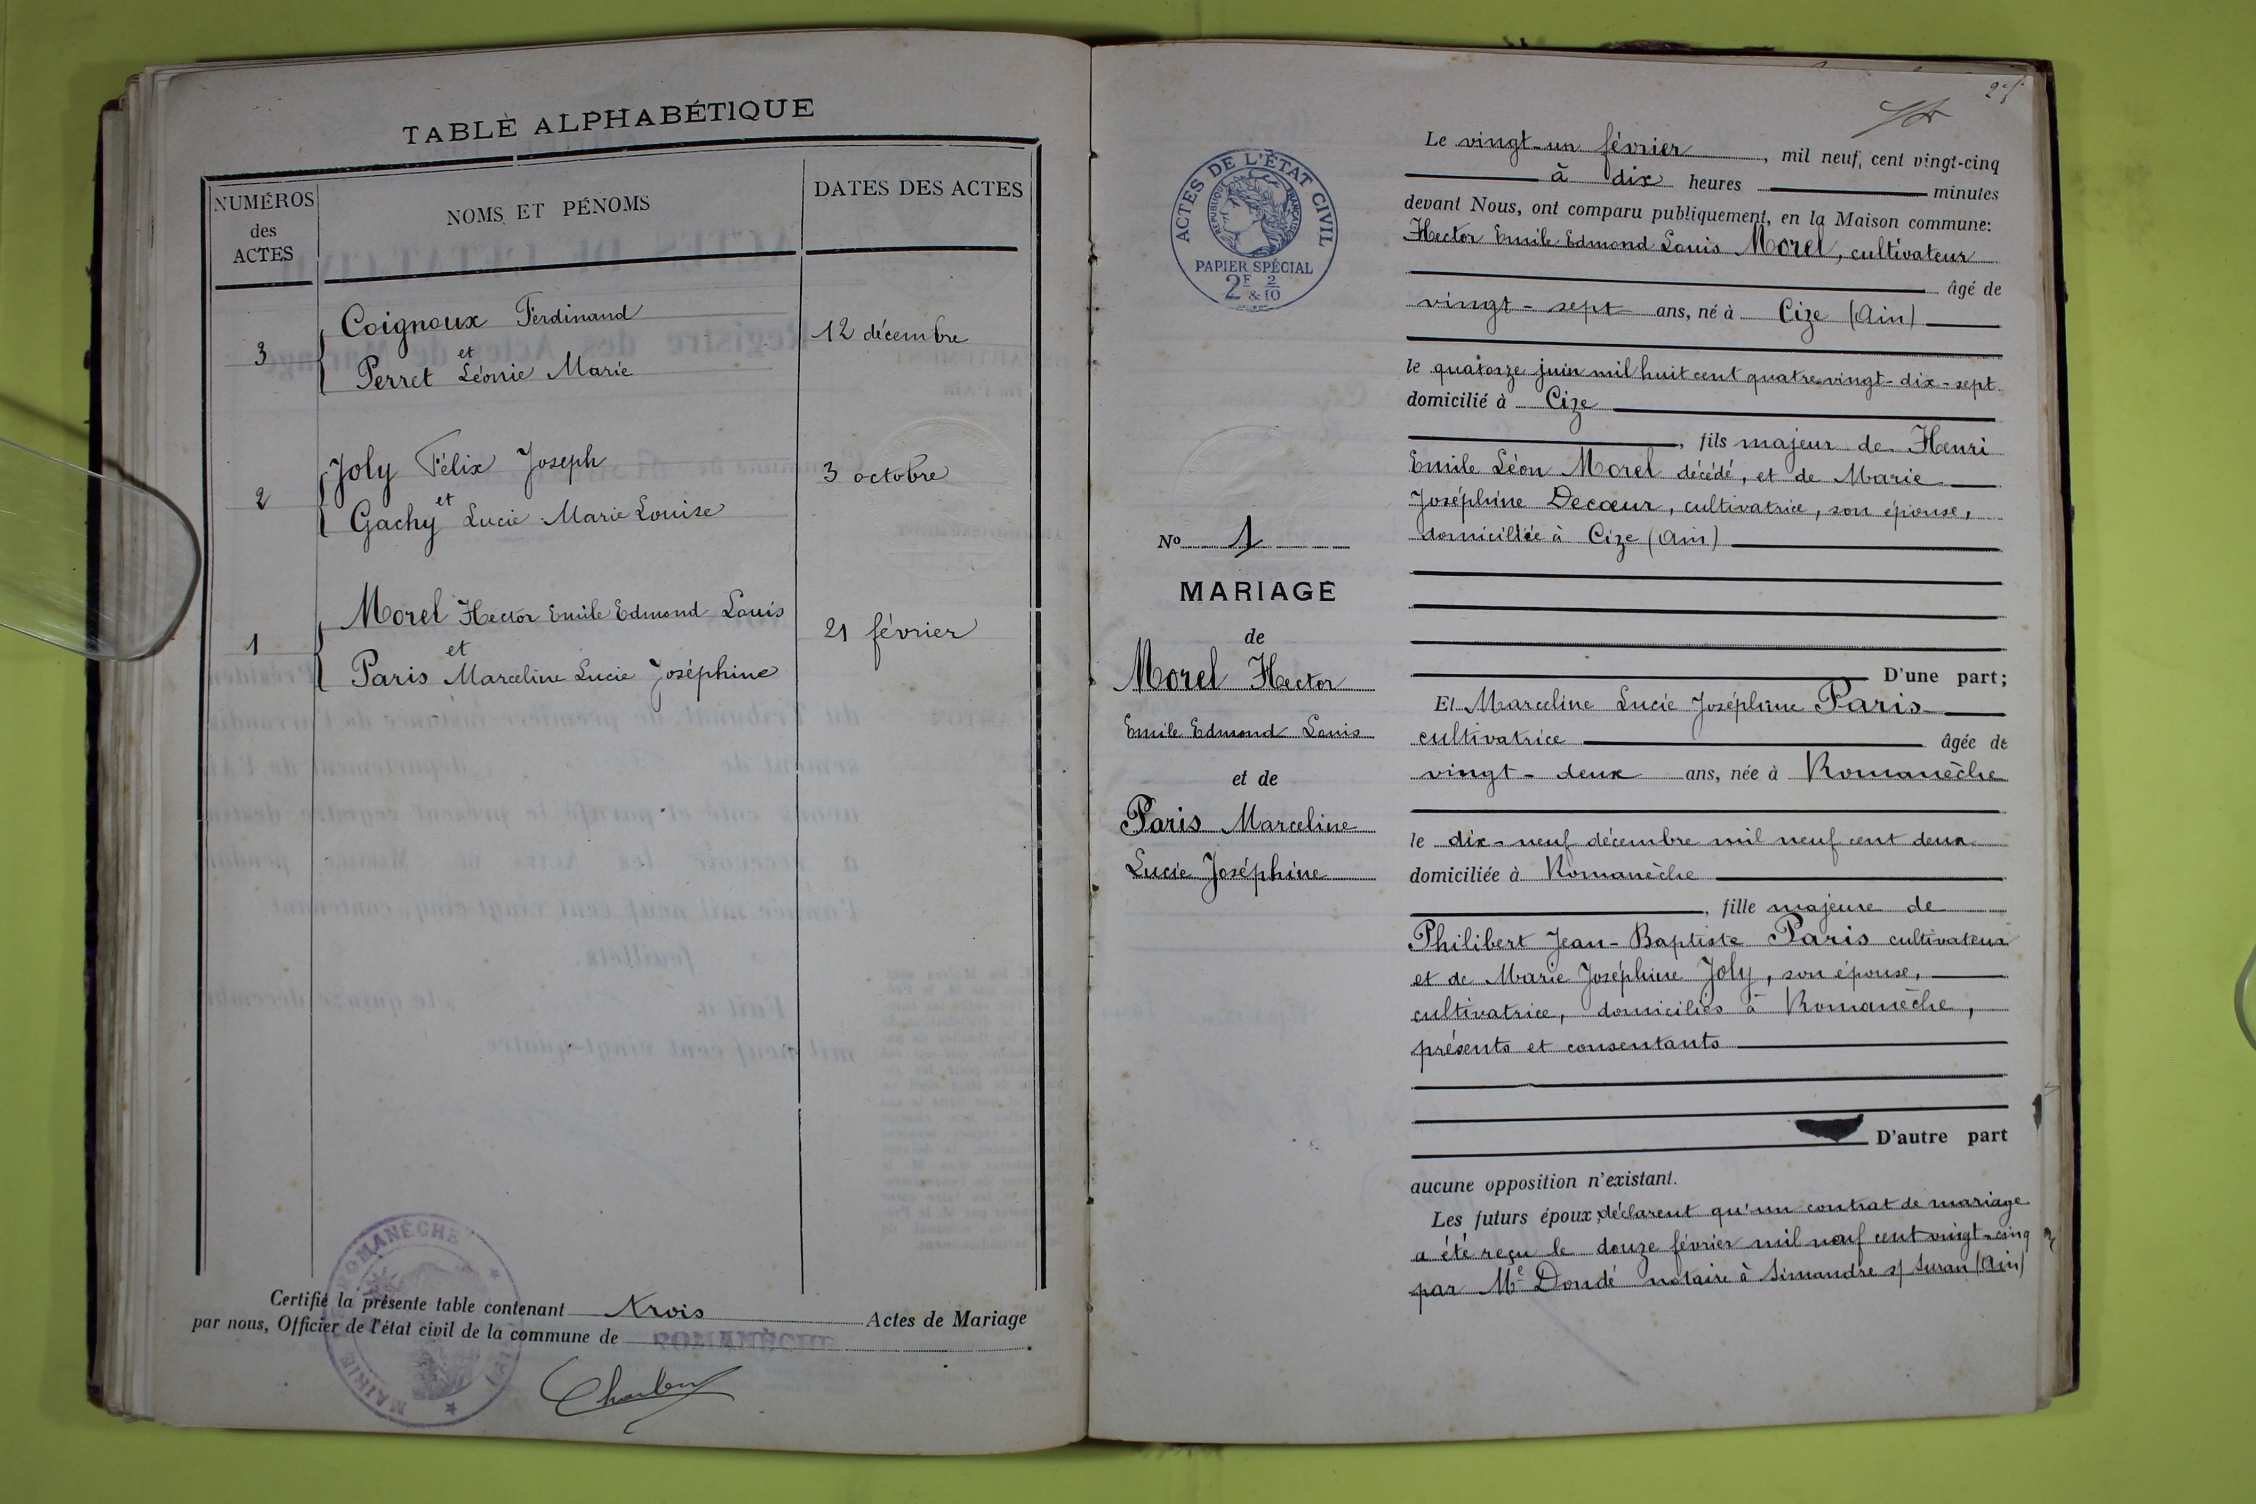 TABLE ALPHABÉTIQUE
NUMÉROS
des
ACTES
NOMS ET PÉNOMS
DATES DES ACTES
3
Coignoux Ferdinand
et
Perret Léonie Marie
12 décembre
2
Joly Félix Joseph
et
Gachy Lucie Marie Louise
3 octobre
1
Morel Hector Emile Edmond Louis
et
Paris Marceline Lucie Joséphine
21 février
Certifié la présente table contenant trois Actes de Mariage
par nous, Officier de l'état civil de la commune de ROMANÈCHE
MAIRIE ROMANÈCHE (AIN)
ACTES DE L'ÉTAT CIVIL
RÉPUBLIQUE FRANÇAISE
PAPIER SPÉCIAL
2F & 2/10
No 1
MARIAGE
de
Morel Hector
Emile Edmond Louis
et de
Paris Marceline
Lucie Joséphine
Le vingt-un février, mil neuf, cent vingt-cinq
à dix heures minutes
devant Nous, ont comparu publiquement, en la Maison commune:
Hector Emile Edmond Louis Morel, cultivateur
âgé de
vingt-sept ans, né à Cize (Ain)
le quatorze juin mil huit cent quatre-vingt-dix-sept
domicilié à Cize
, fils majeur de Henri
Emile Léon Morel décédé, et de Marie
Joséphine Decœur, cultivatrice, son épouse,
domiciliée à Cize (Ain)
D'une part;
Et Marceline Lucie Joséphine Paris
cultivatrice âgée de
vingt-deux ans, née à Romanèche
le dix-neuf décembre mil neuf cent deux
domiciliée à Romanèche
, fille majeure de
Philibert Jean-Baptiste Paris cultivateur
et de Marie Joséphine Joly, son épouse,
cultivatrice, domiciliés à Romanèche,
présents et consentants
D'autre part
aucune opposition n'existant.
Les futurs époux déclarent qu'un contrat de mariage
a été reçu le douze février mil neuf cent vingt-cinq
par Me Dondé notaire à Simandre s/ Suran (Ain)